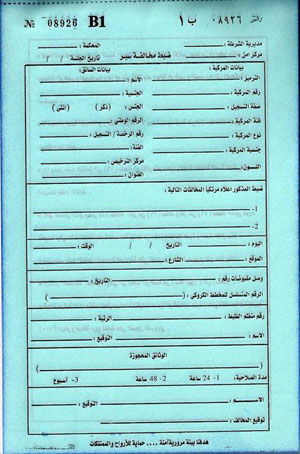 № 08926 B1 ب ١ ٠٨٩٢٦ رقم
مديرية الشرطة : المحكمة :
مركز أمن : ضبط مخالفة سير تاريخ الجلسة / /
بيانات المركبة : بيانات السائق :
الترميز : الاسم :
رقم المركبة : الجنسية :
صفة التسجيل : الجنس : ( ذكر ) ( انثى )
فئة المركبة : الرقم الوطني :
نوع المركبة : رقم الرخصة / التسجيل :
جنسية المركبة : الفئة :
اللـــون : مركز الترخيص :
العنوان :
ضبط المذكور اعلاه مرتكبا المخالفات التالية :
1-
2-
اليوم : التاريخ / / الوقت :
الموقع : الشارع :
وصل مقبوضات رقم : التاريخ :
الرقم المتسلسل للمخطط الكروكي ( )
رقم منظم الضبط : الرتبة :
الاسم : التوقيع :
الوثائق المحجوزة
( )
مدة الصلاحية : 1- 24 ساعة 2- 48 ساعة 3- أسبوع
الاسم : التوقيع :
توقيع المخالف :
هدفنا بيئة مرورية آمنة .... حماية للأرواح والممتلكات